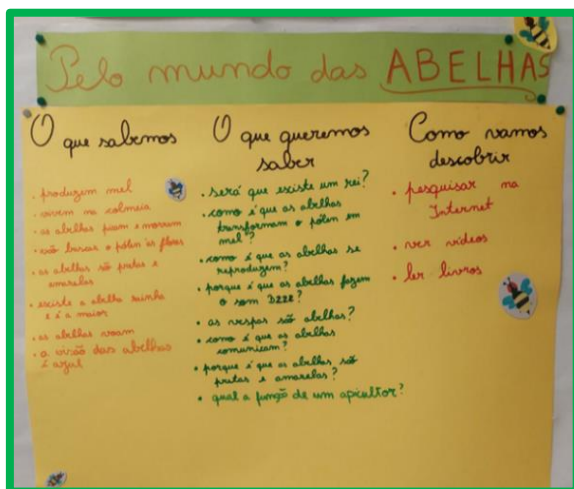 Pelo mundo das ABELHAS
O que sabemos
· produzem mel
· vivem na colmeia
· as abelhas picam e morrem
· vão buscar o pólen às flores
· as abelhas são pretas e
amarelas
· existe a abelha rainha
e é a maior
· as abelhas voam
· a visão das abelhas
é azul
O que queremos
saber
· será que existe um rei?
· como é que as abelhas
transformam o pólen em
mel?
· como é que as abelhas se
reproduzem?
· porque é que as abelhas fazem
o som BZZZ?
· as vespas são abelhas?
· como é que as abelhas
comunicam?
· porque é que as abelhas são
pretas e amarelas?
· qual a função de um apicultor?
Como vamos
descobrir
· pesquisar na
Internet
· ver vídeos
· ler livros